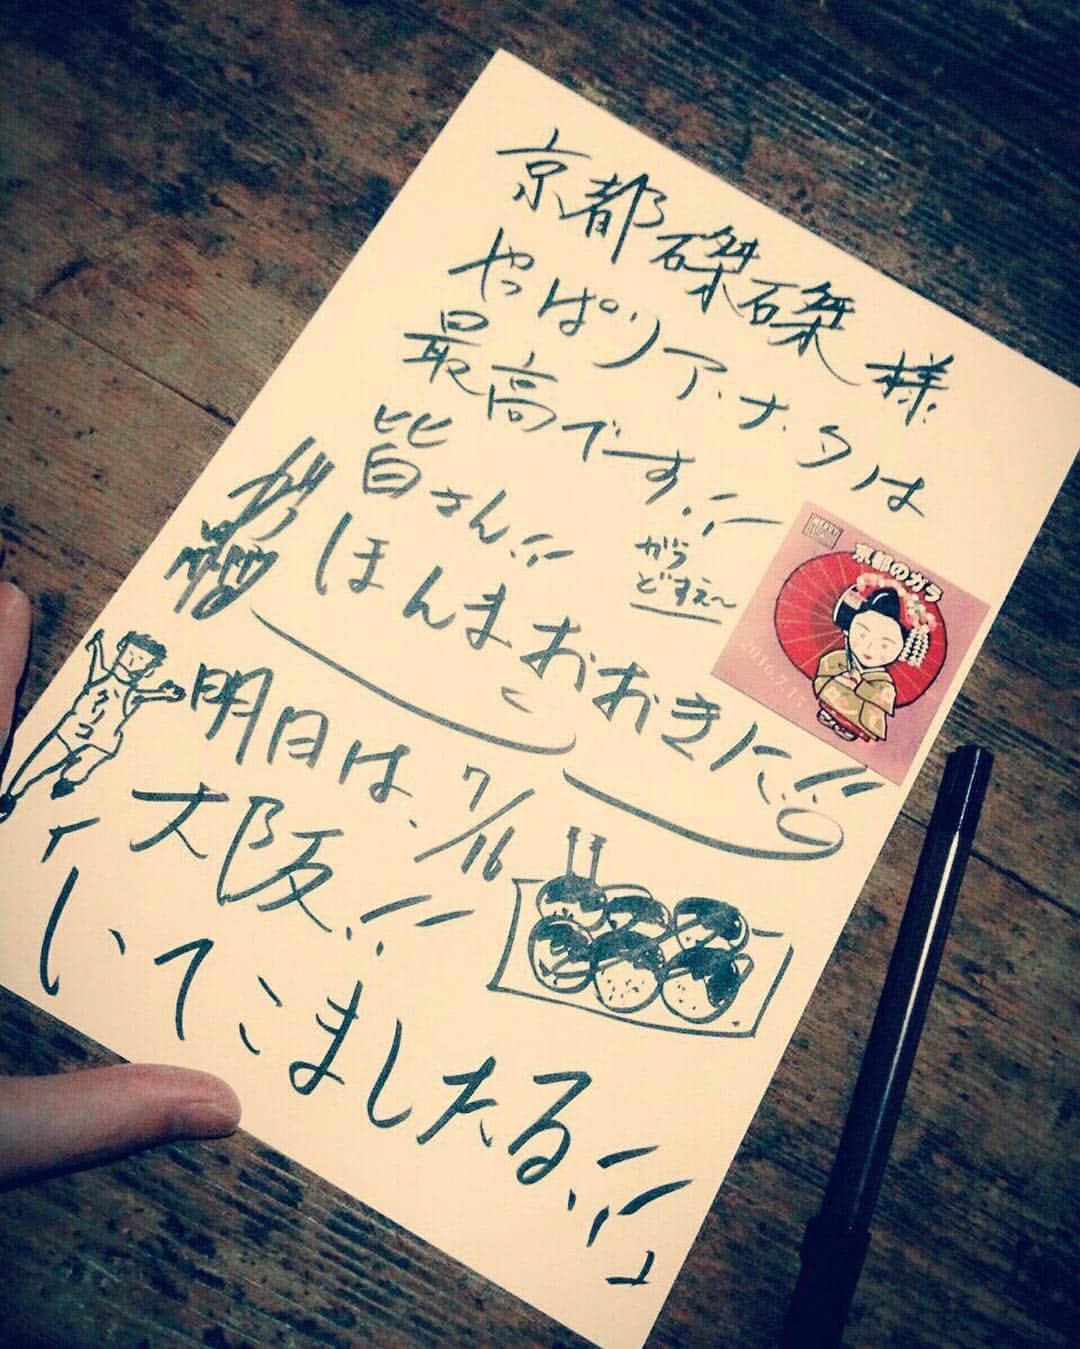 京都磔磔様
やっぱりア・ナ・タは
最高です!!
皆さん!!
がら
どすえ〜
京都のガラ
ほんまおおきに!!
明日は、7/16
大阪!!
「いてこましたる!!」